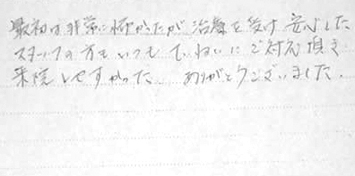 最初は非常に怖かったが治療を受け安心した
スタッフの方もいつもていねいにご対応頂き
来院しやすかった ありがとうございました。